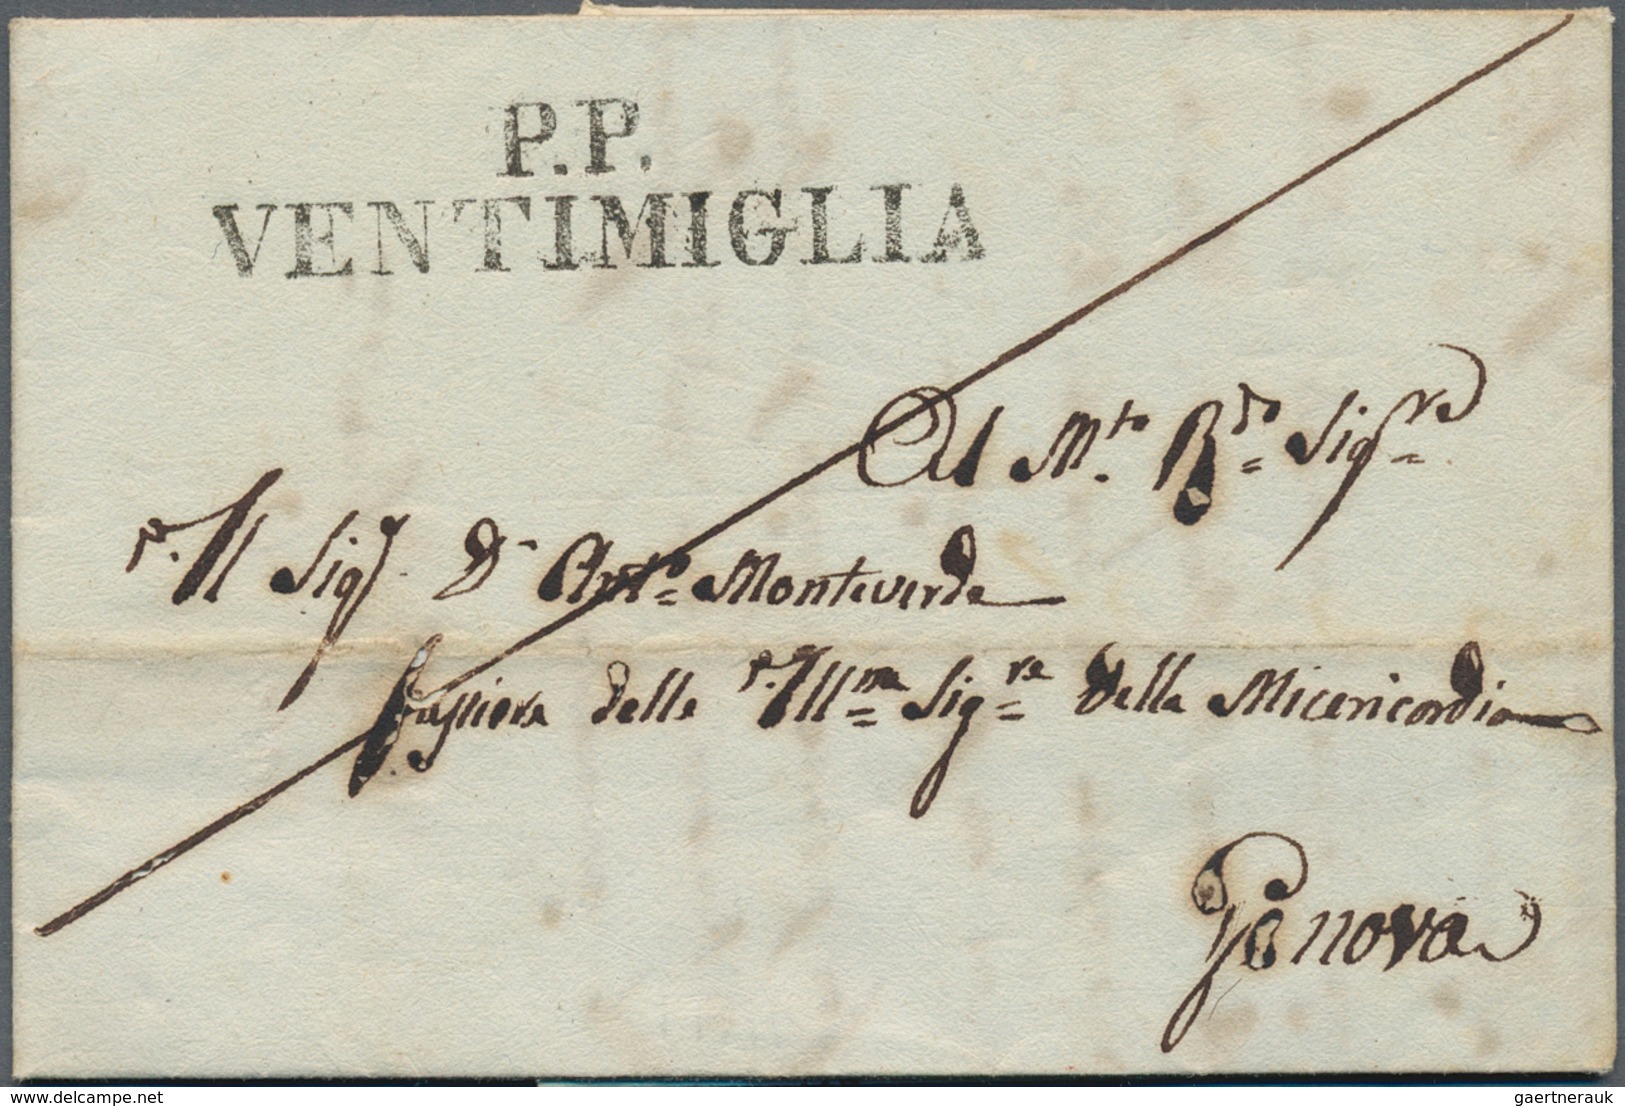 P.P.
VENTIMIGLIA
Al M.to R.do Sig.re
Il Sig.r D.n Ant.o Monteverde
delle Ill.me Sig.re della Misericordia
Genova
© www.delcampe.net
gaertnerauk